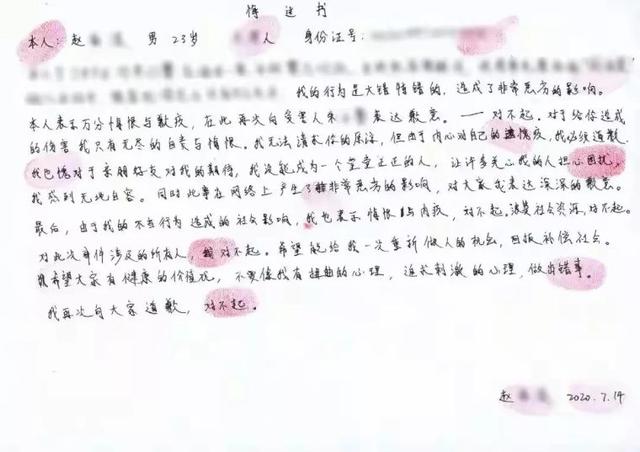 悔过书
本人：赵 男 23岁 人 身份证号：
我的行为是大错特错的，造成了非常恶劣的影响。
本人表示万分悔恨与歉疚，在此再次向受害人朱 表达歉意。——对不起。对于给你造成
的伤害我只有无尽的自责与悔恨。我无法请求你的原谅，但由于内心对自己的悔疚，我必须道歉。
我已愧对于亲朋好友对我的期待，我没能成为一个堂堂正正的人，让许多关心我的人担心困扰，
我感到无地自容。同时此事在网络上产生了非常恶劣的影响，对大家我表达深深的歉意。
最后，由于我的不当行为造成的社会影响，我也表示悔恨与内疚，对不起。浪费社会资源，对不起。
对此次事件涉及的所有人，对不起。希望能给我一次重新做人的机会，回报补偿社会。
希望大家有健康的价值观，不要像我有扭曲的心理，追求刺激的心理，做出错事。
我再次向大家道歉，对不起。
赵 2020.7.14